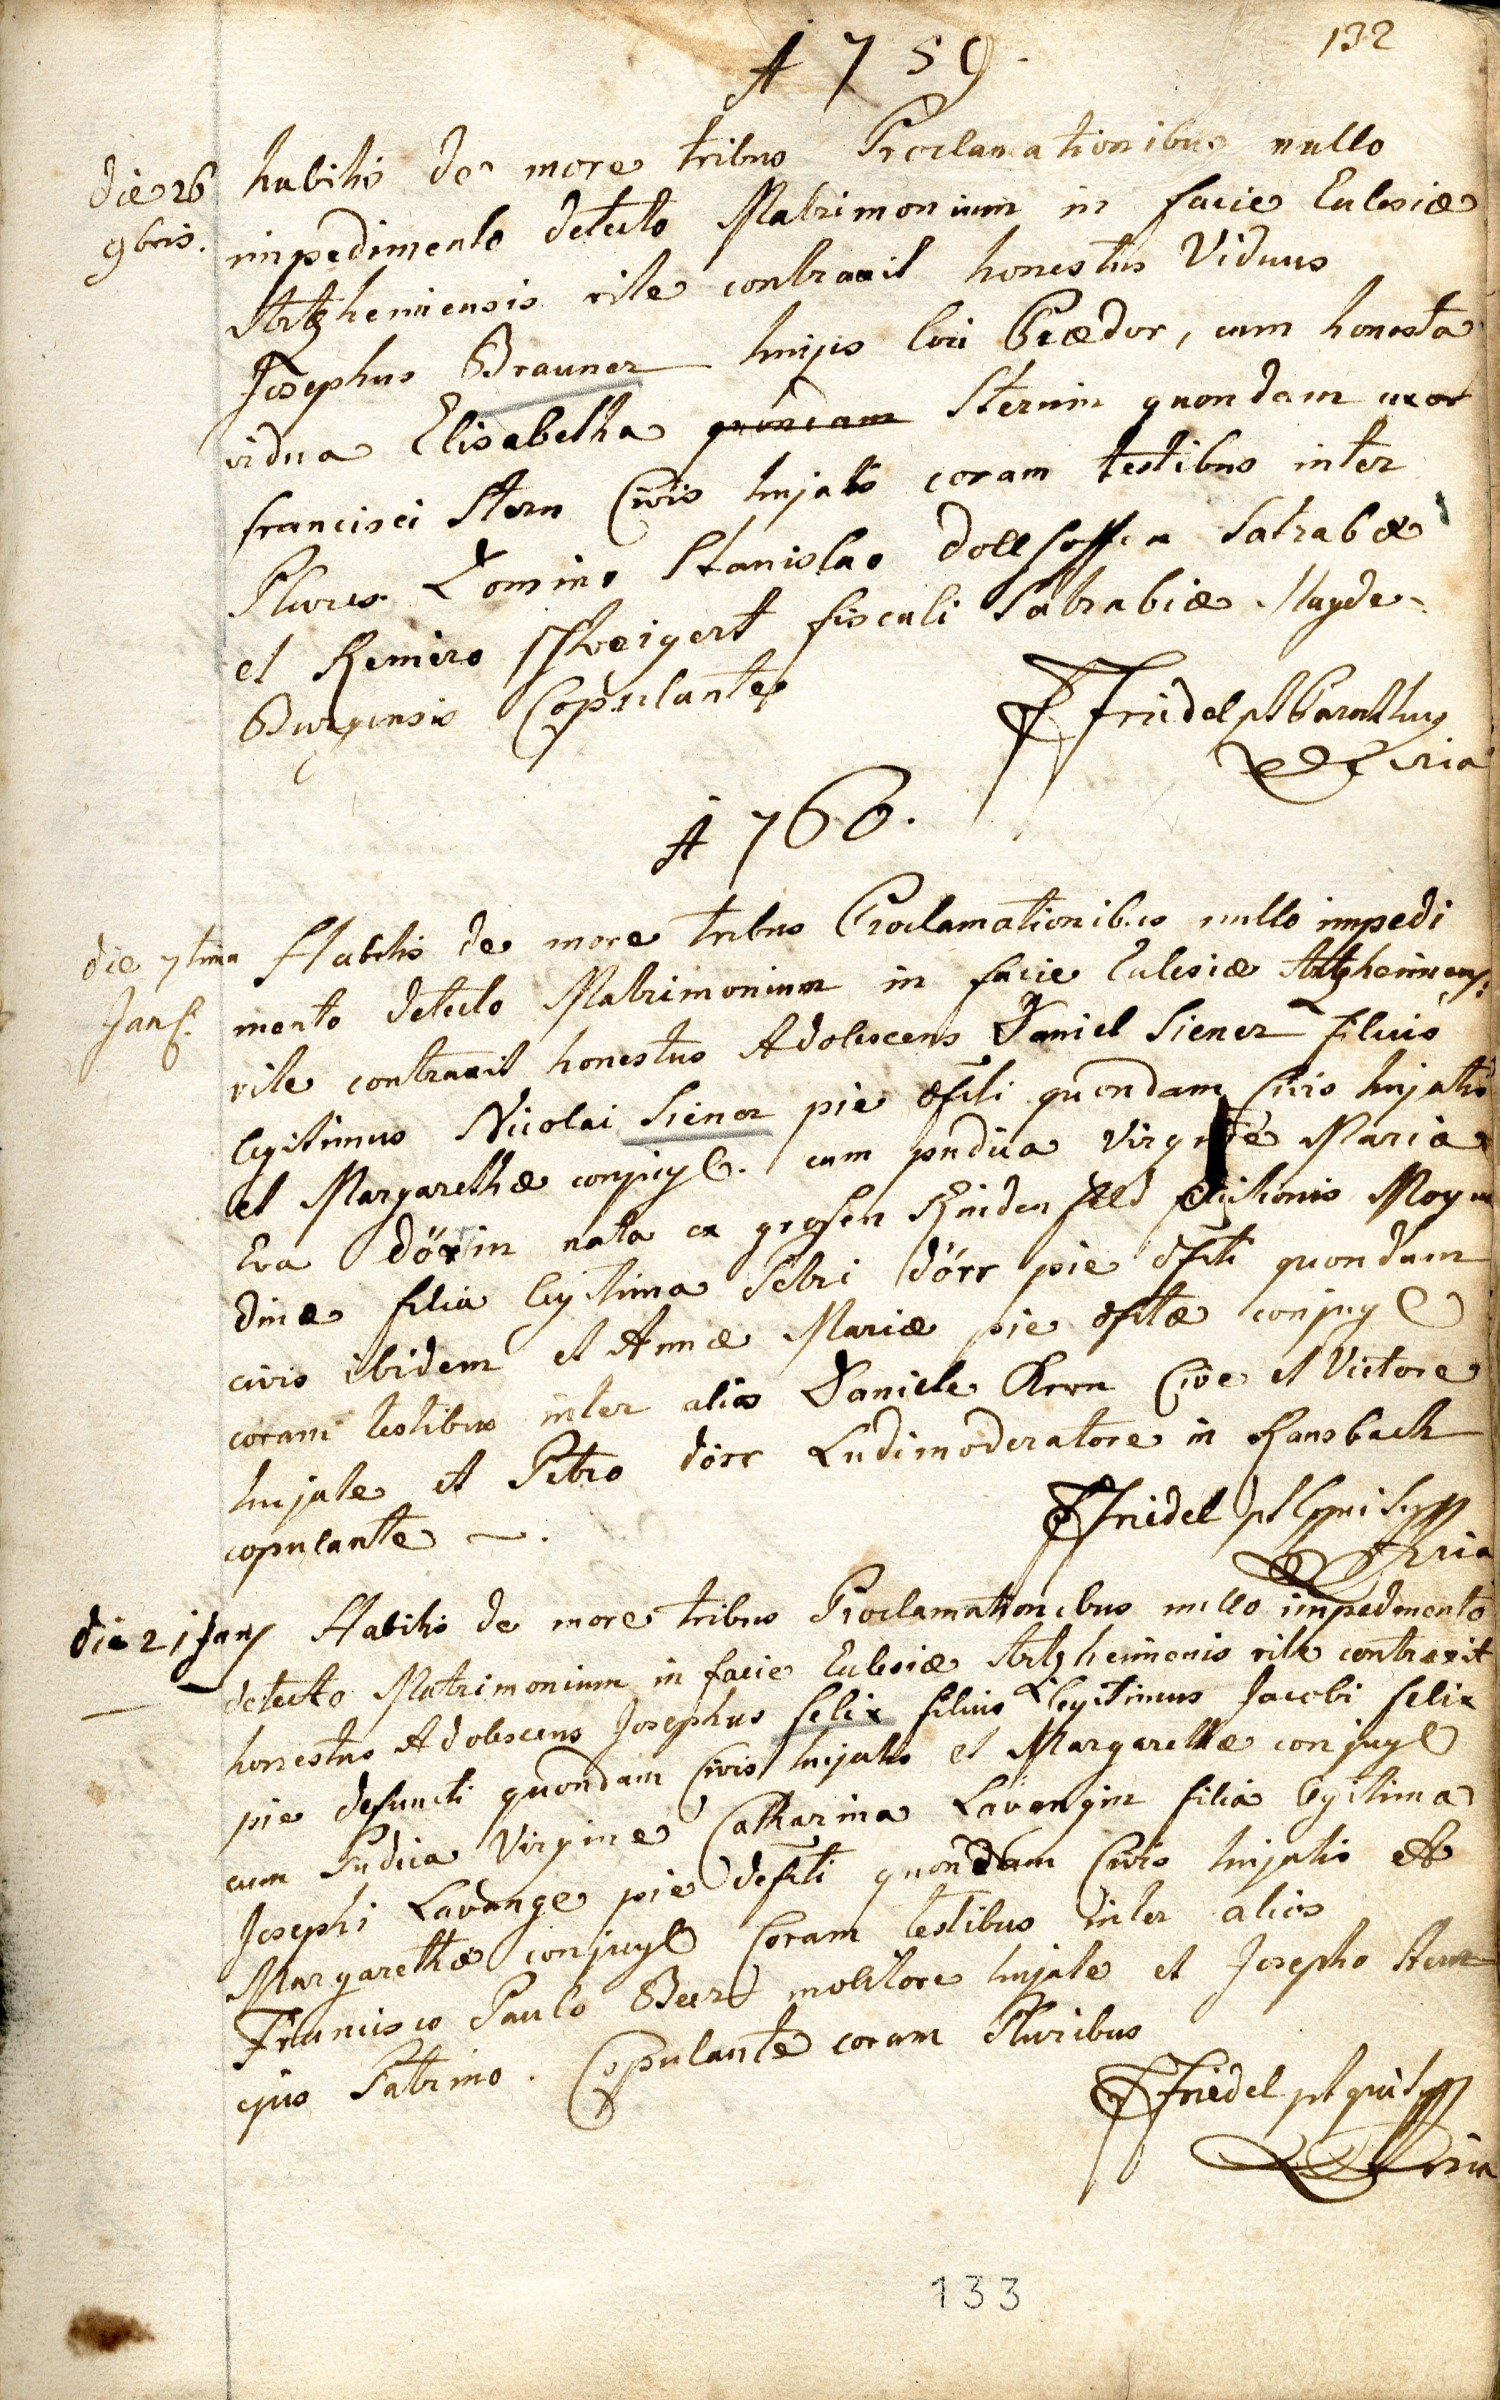 132
A 759.
die 26 habitis de more tribus Proclamationibus nullo
9bris. impedimento detecto Matrimonium in facie Eclesiæ
Artzheimensis rite contraxit honestus Viduus
Josephus Brauner hujus loci Prædor, cum honesta
vidua Elisabetha quondam Sternin quondam uxor
francisci Stern Civis hujatis coram testibus inter
Plures Domino Stanislao Satrabæ
et Remiro fiscali Satrabiæ Magde-
Burgensis Copulante
Friedel pt Parochus
mpria
A 760.
die 7tima Habitis de more tribus Proclamationibus nullo impedi
Jan. mento detecto Matrimonium in facie Eclesiæ Artzheimens:
rite contraxit honestus Adolescens Daniel Siener filius
legitimus Nicolai Siener pie dfcti quondam Civis hujatis
et Margarethæ conjug. cum pudica Virgine Maria
Eva dörrin nata ex grosen Rinden feld ditionis Mogun
dinæ filia legitima Petri dörr pie dfcti quondam
civis ibidem et Annæ Mariæ pie dfctæ conjug
coram testibus inter alios Daniele Kern Cive et Victore
hujate et Petro dörr Ludimoderatore in Ransbach
copulante —.
Friedel pt
mpria
die 21 Jan Habitis de more tribus Proclamationibus nullo impedimento
detecto Matrimonium in facie Eclesiæ Artzheimensis rite contraxit
honestus Adolescens Josephus felix filius legitimus Jacobi felix
pie defuncti quondam Civis hujatis et Margarethæ conjug
cum Pudica Virgine Catharina Lavangin filia legitima
Josephi Lavange pie defcti quondam Civis hujatis et
Margarethæ conjug Coram testibus inter alios
Francisco Paulo Beer molitore hujate et Josepho Stern
ejus Patrino. Copulante coram Pluribus
Friedel pt
mpria
133